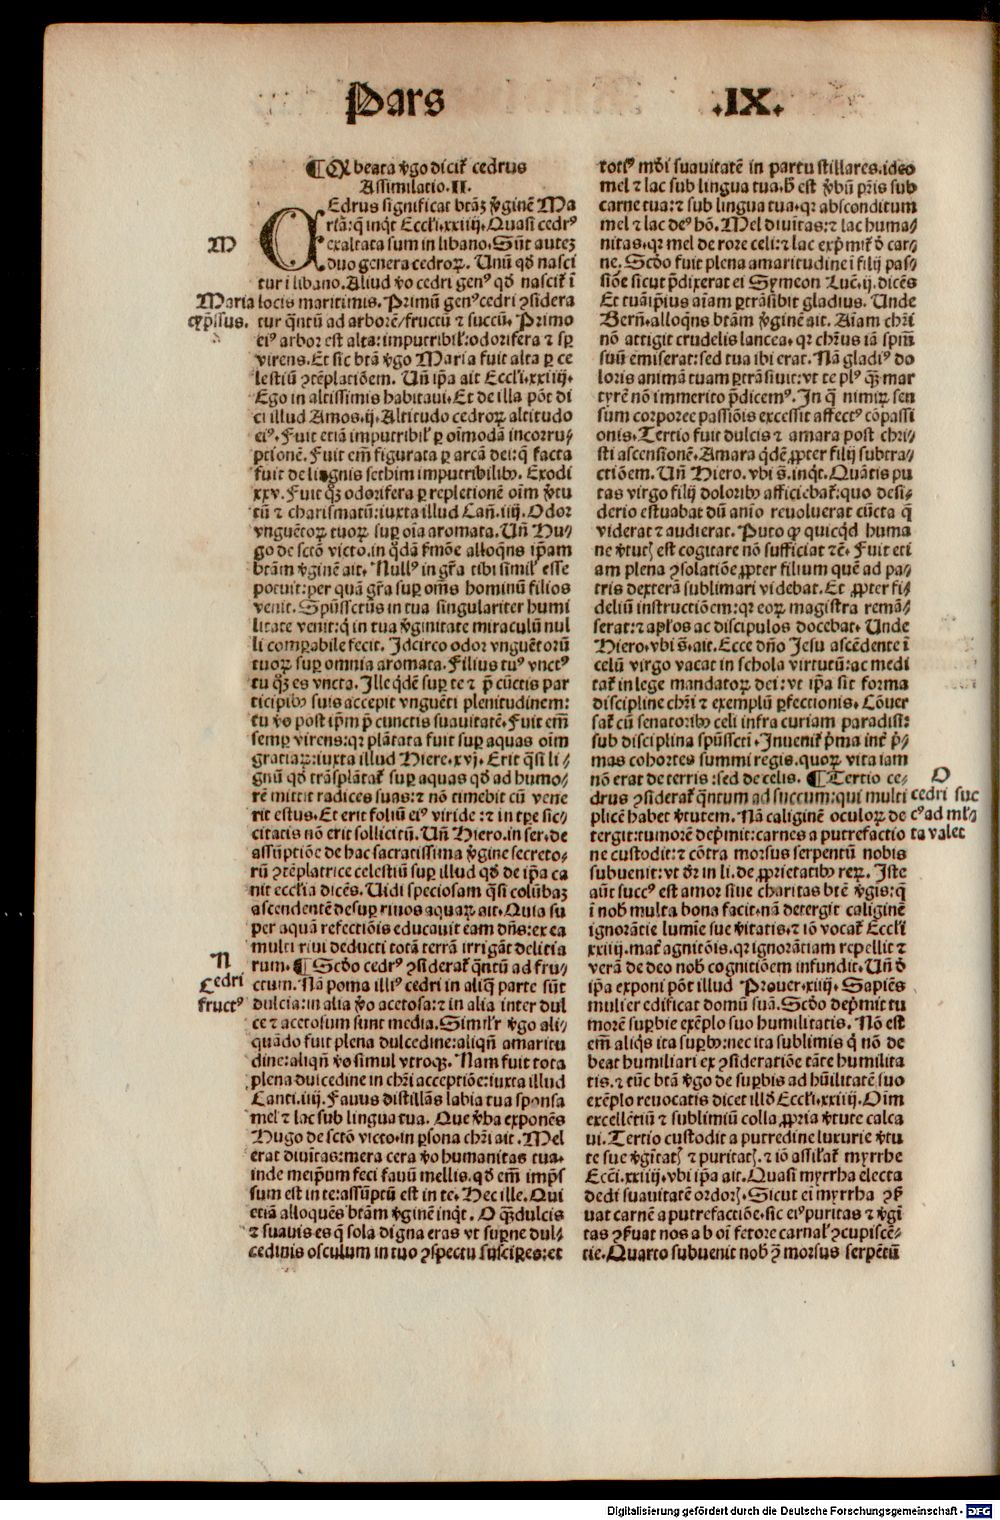 Pars .IX.
¶ Q beata v̓go dicit̓ cedrus
Assimilatio.II.
CEdrus significat btāꝫ v̓ginē Ma
riā:q̄ inqͥt Eccłi.xxiiij.Quasi cedrꝰ
exaltata sum in libano.Sūt auteꝫ
duo genera cedroꝝ. Unū qd̓ nasci
tur ī libano.Aliud v̓o cedri genꝰ qd̓ nascit̓ ī
locis maritimis. Primū genꝰ cedri ꝯsidera
tur q̄ntū ad arborē/fructū ⁊ succū. Primo
eiꝰ arbor est alta:imputribił:odorifera ⁊ sꝑ
virens. Et sic btā v̓go Maria fuit alta ꝑ ce
lestiū ꝯtēplatiōem. Uñ ip̄a ait Eccłi.xxiiij.
Ego in altissimis habitaui.Et de illa pōt di
ci illud Amos.ij.Altitudo cedroꝝ altitudo
eiꝰ.Fuit etiā imputribił ꝑ oīmodā incorru⸗
ptionē. Fuit em̄ figurata ꝑ arcā dei:q̄ facta
fuit de lingnis sethim imputribilibꝰ. Exodi
xxv.Fuit qꝫ odorifera ꝑ repletionē oīm v̓tu
tū ⁊ charismatū:iuxta illud Cañ.iiij.Odor
vnguētoꝝ tuoꝝ suꝑ oīa aromata. Uñ Hu⸗
go de scto victo.in q̄dā s̓mōe alloq̄ns ip̄am
btām v̓ginē ait. Nullꝰ in gr̄a tibi simił esse
potuit:per quā gr̄a suꝑ om̄s hominū filios
venit.Spūssctūs in tua singulariter humi
litate venit:q̄ in tua v̓ginitate miraculū nul
li comꝑabile fecit. Idcirco odor vnguētorū
tuoꝝ suꝑ omnia aromata.Filius tuꝰ vnctꝰ
tu qꝫ es vncta.Ille qͥdē suꝑ te ⁊ p̄ cūctis par
ticipibꝰ suis accepit vnguēti plenitudinem:
tu v̓o post ip̄m p̄ cunctis suauitatē.Fuit em̄
semꝑ virens:qꝛ plātata fuit suꝑ aquas oīm
gratiaꝝ:iuxta illud Hiere.xvj.Erit q̄si li⸗
gnū qd̓ trāsplātat̓ suꝑ aquas qd̓ ad humo⸗
rē mittit radices suas:⁊ nō timebit cū vene
rit estus.Et erit foliū eiꝰ viride:⁊ in tꝑe sic⸗
citatis nō erit sollicitū. Uñ Hiero.in ser.de
assūptiōe de hac sacratissima v̓gine secreto⸗
rū ꝯtēplatrice celestiū suꝑ illud qd̓ de ip̄a ca
nit ecclīa dicēs. Uidi speciosam q̄si colūbaꝫ
ascendentē desuꝑ riuos aquaꝝ ait.Quia su
per aquā refectiōis educauit eam dn̄s:ex ea
multi riui deducti totā terrā irrigāt delitia
rum.¶ Scd̓o cedrꝰ ꝯsiderat̓ q̄ntū ad fru⸗
ctum. Nā poma illiꝰ cedri in aliq̄ parte sūt
dulcia:in alia v̓o acetosa:⁊ in alia inter dul
ce ⁊ acetosum sunt media.Similr̓ v̓go ali⸗
quādo fuit plena dulcedine:aliqn̄ amaritu
dine:aliqn̄ v̓o simul vtroqꝫ. Nam fuit tota
plena dulcedine in chri̅ acceptiōe:iuxta illud
Canti.iiij.Fauus distillās labia tua sponsa
mel ⁊ lac sub lingua tua. Que v̓ba exponēs
Hugo de sctō victo.in ꝑsona chri̅ ait.Mel
erat diuītas:mera cera v̓o humanitas tua.
inde meip̄um feci fauū mellis.qd̓ em̄ imp̄s
sum est in te:assūptū est in te.Hec ille.Qui
etiā alloquēs btām v̓ginē inqͥt. O qꝫ dulcis
⁊ suauis es q̄ sola digna eras vt suꝑne dul⸗
cedinis osculum in tuo ꝯspectu susciꝑes:et
M
Maria
cyp̄ssus.
N
Cedri
fructꝰ
totiꝰ mūdi suauitatē in partu stillares.ideo
mel ⁊ lac sub lingua tua.h̓ est v̓bū pr̄is sub
carne tua:⁊ sub lingua tua.qꝛ absconditum
mel ⁊ lac deꝰ hō.Mel diuītas:⁊ lac huma⸗
nitas.qꝛ mel de rore celi:⁊ lac exp̄mit̓ d̓ car⸗
ne. Scd̓o fuit plena amaritudine ī filij pas⸗
siōe sicut p̄dixerat ei Symeon Luc̄.ij.dicēs
Et tuāip̄ius aīam ꝑtrāsibit gladius. Unde
Berñ.alloq̄ns btām v̓ginē ait. Aīam chri̅
nō attigit crudelis lancea. qꝛ chrīus iā spm̄
suū emiserat:sed tua ibi erat.Nā gladiꝰ do
loris animā tuam ꝑtrāsiuit:vt te plꝰ qꝫ mar
tyrē nō immerito p̄dicemꝰ.In q̄ nimiꝝ sen
sum corporee passiōis excessit affectꝰ cōpassi
onis.Tertio fuit dulcis ⁊ amara post chri⸗
sti ascensionē.Amara qͥdē ꝓpter filij subtra⸗
ctiōem. Uñ Hiero.vbi s̄.inqͥt.Quātis pu
tas virgo filij doloribꝰ afficiebat̓:quo desi⸗
derio estuabat dū aīo reuoluerat cūcta q̄
viderat ⁊ audierat. Puto ꝙ quicqͥd huma
ne v̓tutꝭ est cogitare nō sufficiat ⁊c̄. Fuit eti
am plena ꝯsolatiōe ꝓpter filium quē ad pa⸗
tris dexterā sublimari videbat.Et ꝓpter fi⸗
deliū instructiōem:qꝛ eoꝝ magistra remā⸗
serat:⁊ ap̄los ac discipulos docebat. Unde
Hiero.vbi s̄.ait.Ecce dn̄o Jesu ascēdente ī
celū virgo vacat in schola virtutū:ac medi
tat̓ in lege mandatoꝝ dei:vt ip̄a sit forma
discipline chri̅ ⁊ exemplū ꝑfectionis. Cōuer
sat̓ cū senatoribꝰ celi infra curiam paradisi:
sub disciplina spūsscti.Inuenit̓ p̓ma int̓ p̓⸗
mas cohortes summi regis.quoꝝ vita iam
nō erat de terris:sed de celis. ¶Tertio ce⸗
drus ꝯsiderat̓ q̄ntum ad succum:qui multi
plicē habet v̓tutem. Nā caliginē oculoꝝ de
tergit:tumorē dep̄mit:carnes a putrefactio
ne custodit:⁊ cōtra morsus serpentū nobis
subuenit:vt dr̄ in li.de ꝓprietatibꝰ reꝝ. Iste
aūt succꝰ est amor siue charitas btē v̓gis:q̄
ī nob̓ multa bona facit.nā detergit caliginē
ignorātie lumie sue v̓itatis.⁊ iō vocat̓ Eccłi
xxiiij.mat̓ agnitōis.qꝛ ignorātiam repellit ⁊
verā de deo nob̓ cognitiōem infundit.Uñ d̓
ip̄a exponi pōt illud Prouer.xiiij.Sapiēs
mulier edificat domū suā.Scd̓o dep̄mit tu
morē suꝑbie exēplo suo humilitatis. Nō est
em̄ aliqͥs ita suꝑbꝰ:nec ita sublimis qͥ nō de
beat humiliari ex ꝯsideratiōe tāte humilita
tis.⁊ tūc btā v̓go de suꝑbis ad hūilitatē suo
exēplo reuocatis dicet illd̓ Eccłi.xxiiij.Oīm
excellētiū ⁊ sublimiū colla ꝓpria v̓tute calca
ui.Tertio custodit a putredine luxurie v̓tu
te sue v̓gitatꝭ ⁊ puritatꝭ.⁊ iō assilat̓ myrrhe
Eccī.xxiiij.vbi ip̄a ait.Quasi myrrha electa
dedi suauitatē ordorꝭ.Sicut ei myrrha ꝯs̓
uat carnē a putrefactiōe.sic eiꝰ puritas ⁊ v̓gi
tas ꝯs̓uat nos ab oī fetore carnał ꝯcupiscē⸗
tie.Quarto subuenit nob̓ ꝯ̄ morsus serpētū
O
cedri suc
cꝰ ad ml̓⸗
ta valet
Digitalisierung gefördert durch die Deutsche Forschungsgemeinschaft - DFG